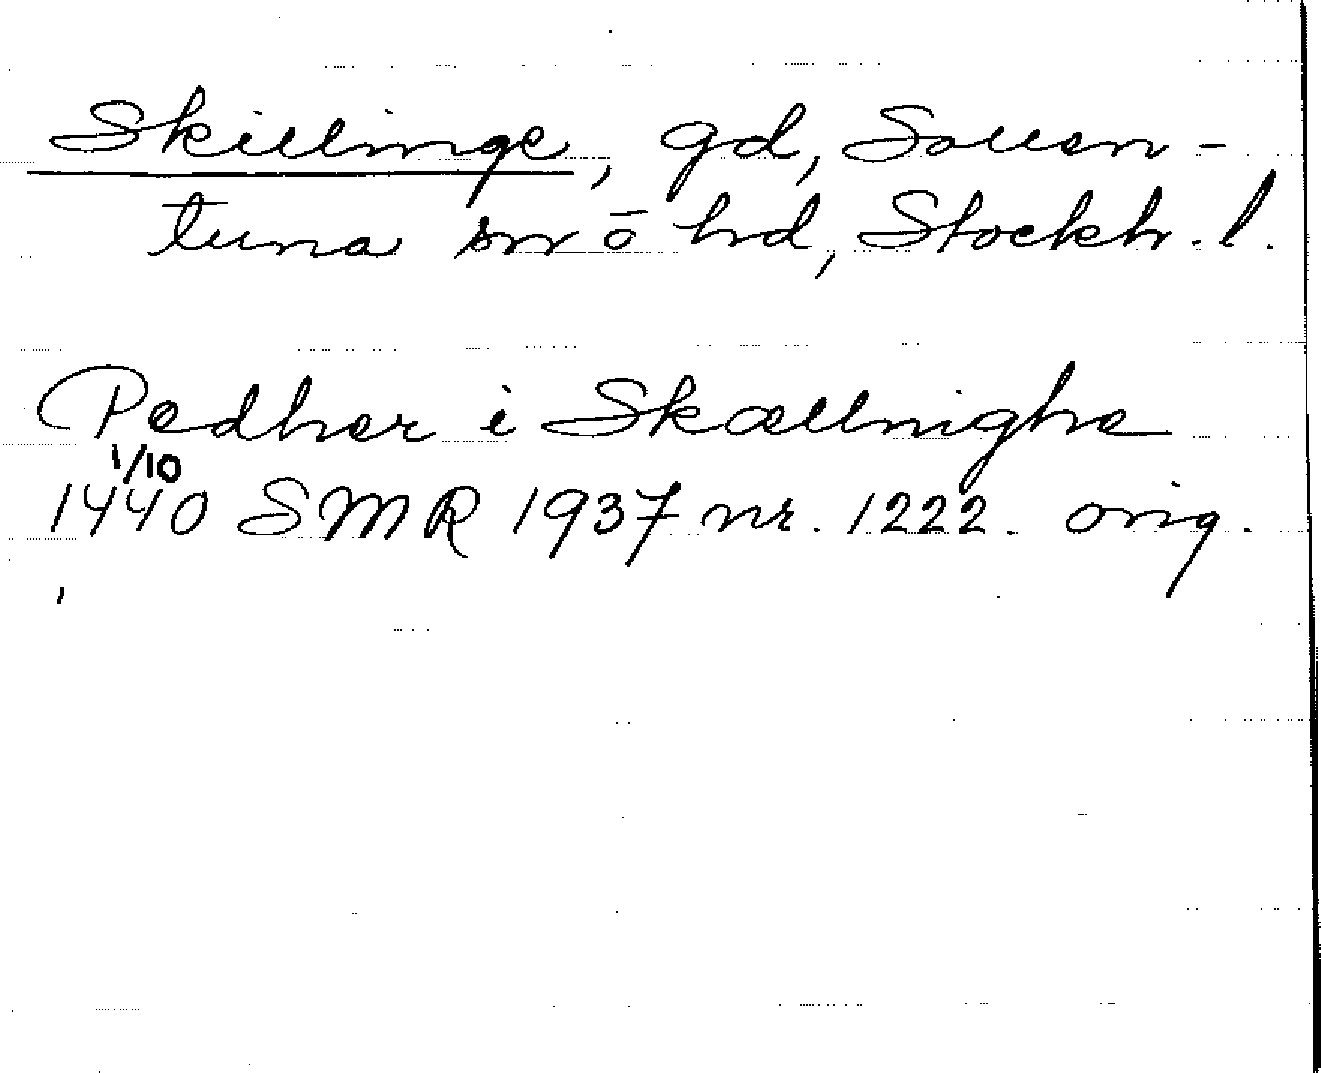 Skillinge, gd, Sollen-
tuna sn o hd, Stockh. l.
Pedher i Skællnighe
1/10
1440 SMR 1937 nr. 1222. orig.